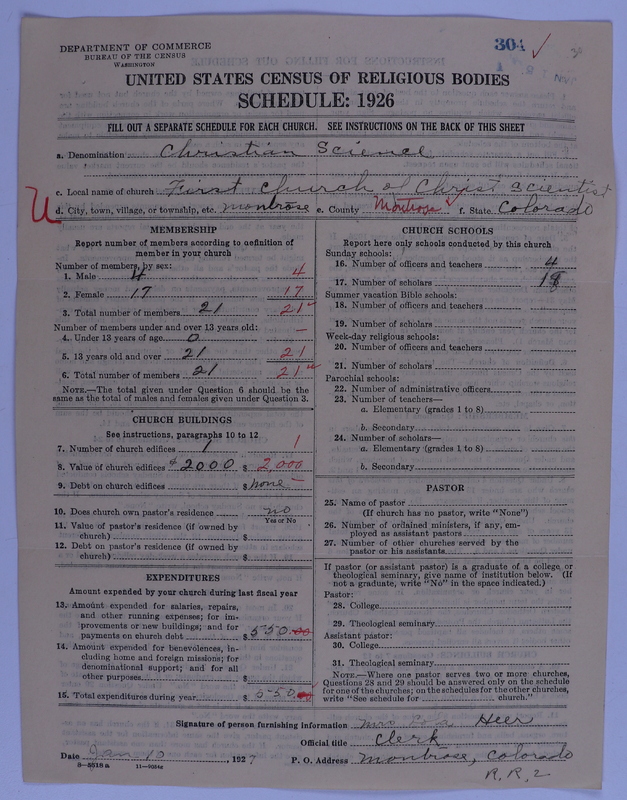 DEPARTMENT OF COMMERCE
BUREAU OF THE CENSUS
WASHINGTON
304 ✓
UNITED STATES CENSUS OF RELIGIOUS BODIES
SCHEDULE: 1926
FILL OUT A SEPARATE SCHEDULE FOR EACH CHURCH. SEE INSTRUCTIONS ON THE BACK OF THIS SHEET
a. Denomination Christian Science
c. Local name of church First Church of Christ Scientist
U d. City, town, village, or township, etc. Montrose e. County Montrose f. State Colorado
MEMBERSHIP
Report number of members according to definition of
member in your church
Number of members, by sex:
1. Male 4 4
2. Female 17 17
3. Total number of members 21 21
Number of members under and over 13 years old:
4. Under 13 years of age 0 —
5. 13 years old and over 21 21
6. Total number of members 21 21
NOTE.—The total given under Question 6 should be
the same as the total of males and females given under Question 3.
CHURCH BUILDINGS
See instructions, paragraphs 10 to 12
7. Number of church edifices 1 1
8. Value of church edifices $2000 $ 2,000
9. Debt on church edifices $ none —
10. Does church own pastor's residence no
Yes or No
11. Value of pastor's residence (if owned by
church) $
12. Debt on pastor's residence (if owned by
church) $
EXPENDITURES
Amount expended by your church during last fiscal year
13. Amount expended for salaries, repairs,
and other running expenses; for im-
provements or new buildings; and for
payments on church debt $ 550.00
14. Amount expended for benevolences, in-
cluding home and foreign missions; for
denominational support; and for all
other purposes $
15. Total expenditures during year $ 550
CHURCH SCHOOLS
Report here only schools conducted by this church
Sunday schools:
16. Number of officers and teachers 4
17. Number of scholars 18
Summer vacation Bible schools:
18. Number of officers and teachers
19. Number of scholars
Week-day religious schools:
20. Number of officers and teachers
21. Number of scholars
Parochial schools:
22. Number of administrative officers
23. Number of teachers—
a. Elementary (grades 1 to 8)
b. Secondary
24. Number of scholars—
a. Elementary (grades 1 to 8)
b. Secondary
PASTOR
25. Name of pastor
(If church has no pastor, write "None")
26. Number of ordained ministers, if any, em-
ployed as assistant pastors
27. Number of other churches served by the
pastor or his assistants
If pastor (or assistant pastor) is a graduate of a college or
theological seminary, give name of institution below. (If
not a graduate, write "No" in the space indicated.)
Pastor:
28. College
29. Theological seminary
Assistant pastor:
30. College
31. Theological seminary
NOTE.—Where one pastor serves two or more churches,
Questions 28 and 29 should be answered only on the schedule
for one of the churches; on the schedules for the other churches,
write "See schedule for church."
Signature of person furnishing information Mrs Heer
Official title Clerk
Date Jan 10, 1927 P. O. Address Montrose, Colorado
8—5518a 11—9034 R.R. 2